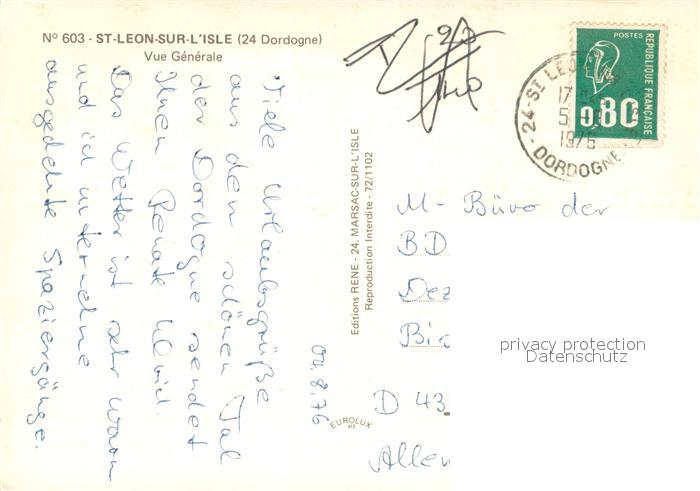 N° 603 - ST-LEON-SUR-L'ISLE (24 Dordogne)
Vue Générale
Viele Urlaubsgrüße
aus dem schönen Tal
der Dordogne sendet
Ihnen Renate
Das Wetter ist sehr warm
und ich unternehme
ausgedehnte Spaziergänge.
04.8.76
Editions RENE - 24. MARSAC-SUR-L'ISLE
Reproduction Interdite - 72/1102
EUROLUX
POSTES
REPUBLIQUE FRANÇAISE
0,80
24-ST LEO
17 H
5
1976
DORDOGNE
M-Büro der
BD
Dez
Bis
D 43
Allem
privacy protection
Datenschutz